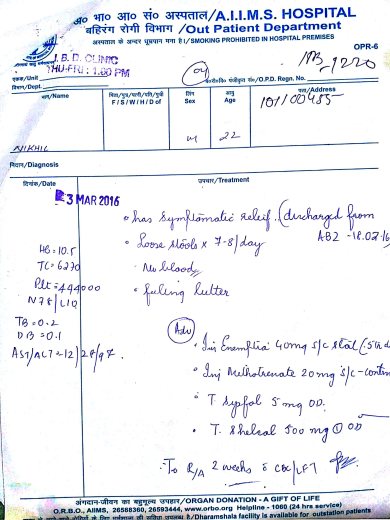 अ० भा० आ० सं० अस्पताल/A.I.I.M.S. HOSPITAL
बहिरंग रोगी विभाग /Out Patient Department
अस्पताल के अन्दर धूम्रपान मना है।/SMOKING PROHIBITED IN HOSPITAL PREMISES
OPR-6
I.B.D. CLINIC
THU-FRI: 1.00 PM
एकक/Unit
विभाग/Dept.
O.P.D. Regn. No.
नाम/Name
पिता/पुत्र/पत्नी/पति/पुत्री
F / S / W / H / D of
लिंग
Sex
आयु
Age
पता/Address
101/00485
NIKHIL
M
22
निदान/Diagnosis
दिनांक/Date
उपचार/Treatment
3 MAR 2016
• has symptomatic relief. (discharged from
AB2 -18.02.16
• Loose stools x 7-8/day
• No blood
• feeling better
HB = 10.5
TC = 6270
Plt = 494000
N78/L10
TB = 0.2
DB = 0.1
AST/ALT = 12/28/97.
Adv
• Inj 40mg s/c stat (5th d
• Inj Methotrexate 20mg s/c - contin
• T 5 mg OD.
• T. Shelcal 500 mg ① OD
To R/A 2 weeks c̄ CBC/LFT
अंगदान-जीवन का बहुमूल्य उपहार/ORGAN DONATION - A GIFT OF LIFE
O.R.B.O., AIIMS, 26588360, 26593444, www.orbo.org Helpline - 1060 (24 hrs service)
/Dharamshala facility is available for outstation patients